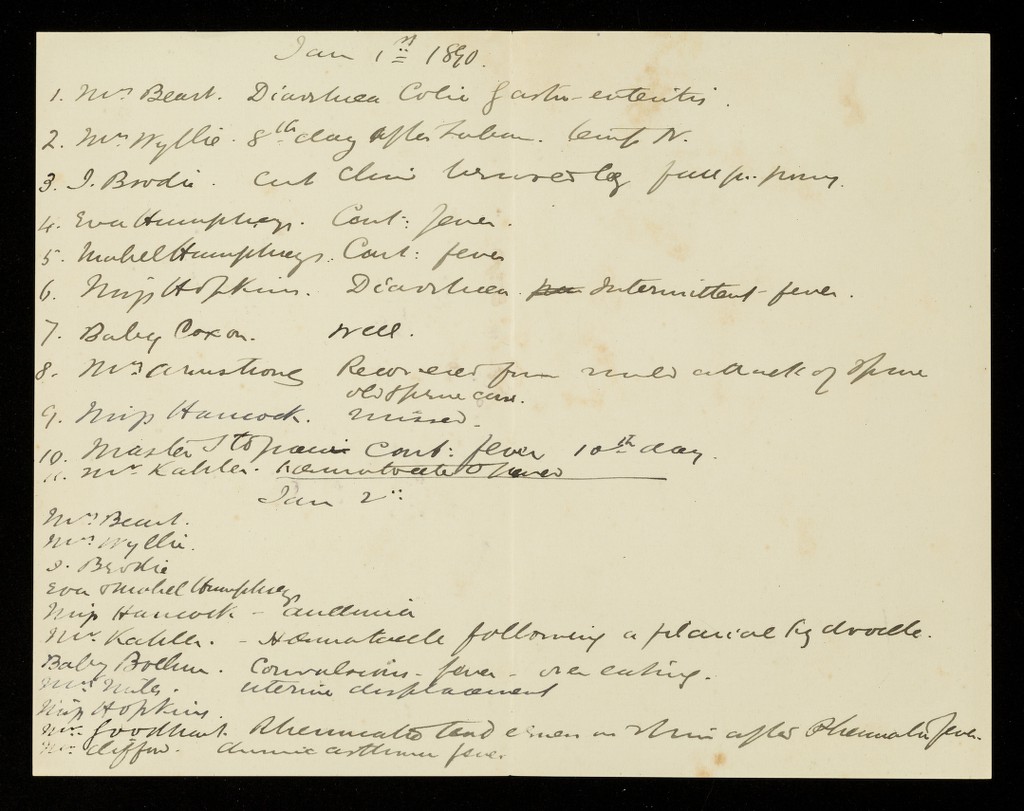 Jan 1st 1890.
1. Mrs Beart. Diarrhea Colic Gastro-enteritis.
2. Mrs Wyllie. 8th day after Labour. temp N.
3. I. Brodie. cut chin
4. Eva Humphreys. Cont: fever.
5. Mabel Humphreys. Cont: fever
6. Miss Hopkins. Diarrhea. Intermittent fever.
7. Baby Coxon. Well.
8. Mrs Armstrong Recovered from mild attack of Sprue
old Sprue case.
9. Miss Hancock. missed.
10. Master Cont: fever 10th day.
11. Mr Kahler. Haematocele & fever
Jan 2
Mrs Beart.
Mrs Wyllie.
I. Brodie
Eva & Mabel Humphreys
Miss Hancock - anaemia
Mr Kahler. - Haematocele following a filarial hydrocele.
Baby Boehm. Convulsions - fever - over eating.
Mrs Miles. uterine displacement
Miss Hopkins.
Goodhart. Rheumatic tenderness on shin after Rheumatic fever.
fever.